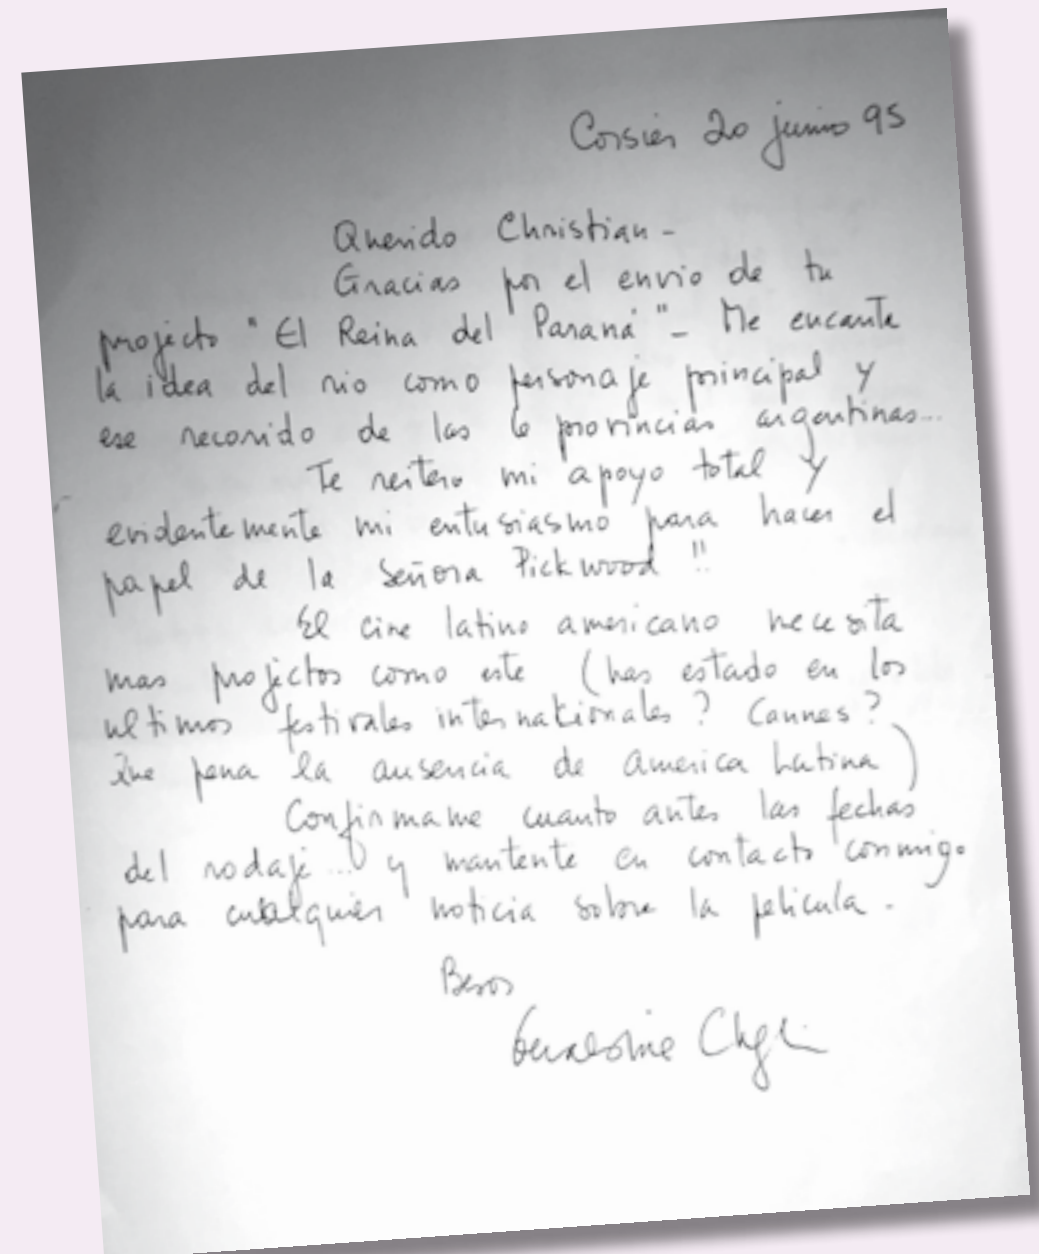 Corsier 20 junio 95
Querido Christian -
Gracias por el envio de tu
projecto "El Reina del Paraná" - Me encanta
la idea del rio como personaje principal y
ese recorrido de las 6 provincias argentinas...
Te reitero mi apoyo total y
evidentemente mi entusiasmo para hacer el
papel de la Señora Pickwood !!
El cine latino americano necesita
mas projectos como este (has estado en los
ultimos festivales internationales? Cannes?
Que pena la ausencia de America Latina)
Confirmame cuanto antes las fechas
del rodaje... y mantente en contacto conmigo
para cualquier noticia sobre la pelicula.
Besos
Geraldine